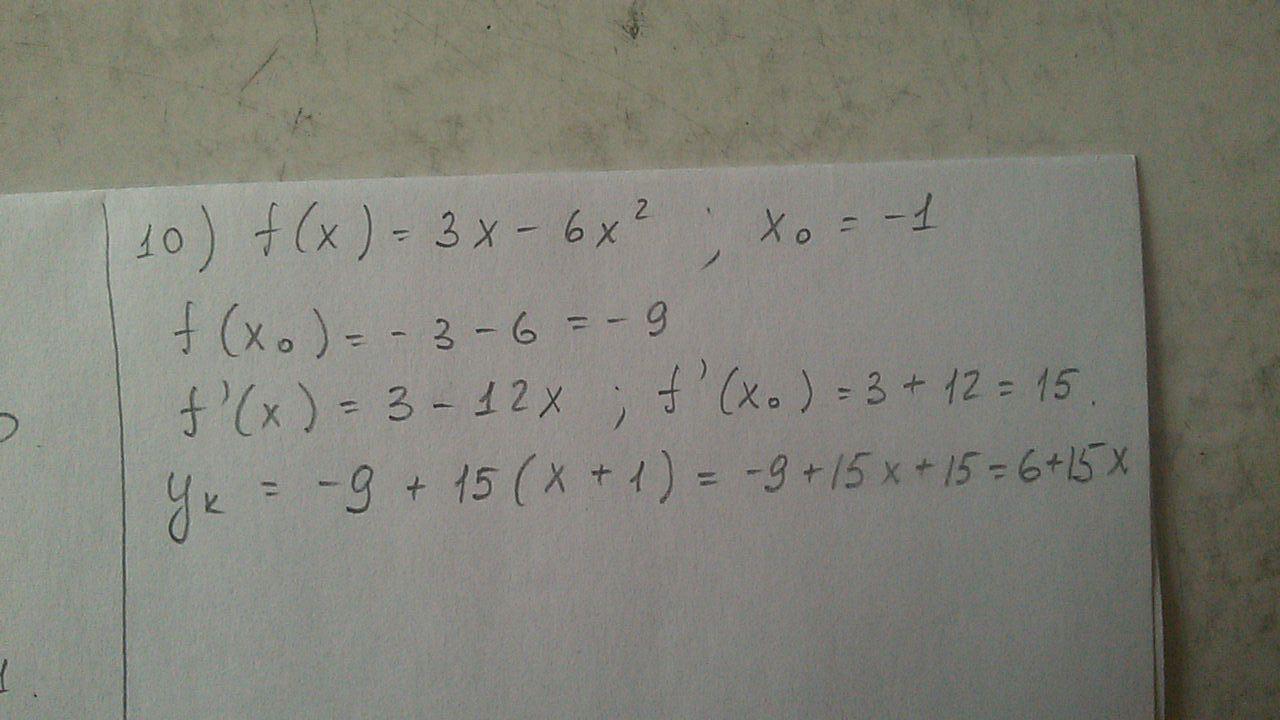 10) f(x) = 3x - 6x² ; x₀ = -1
f(x₀) = - 3 - 6 = - 9
f'(x) = 3 - 12x ; f'(x₀) = 3 + 12 = 15.
yₖ = -9 + 15(x + 1) = -9 + 15x + 15 = 6 + 15x
1.